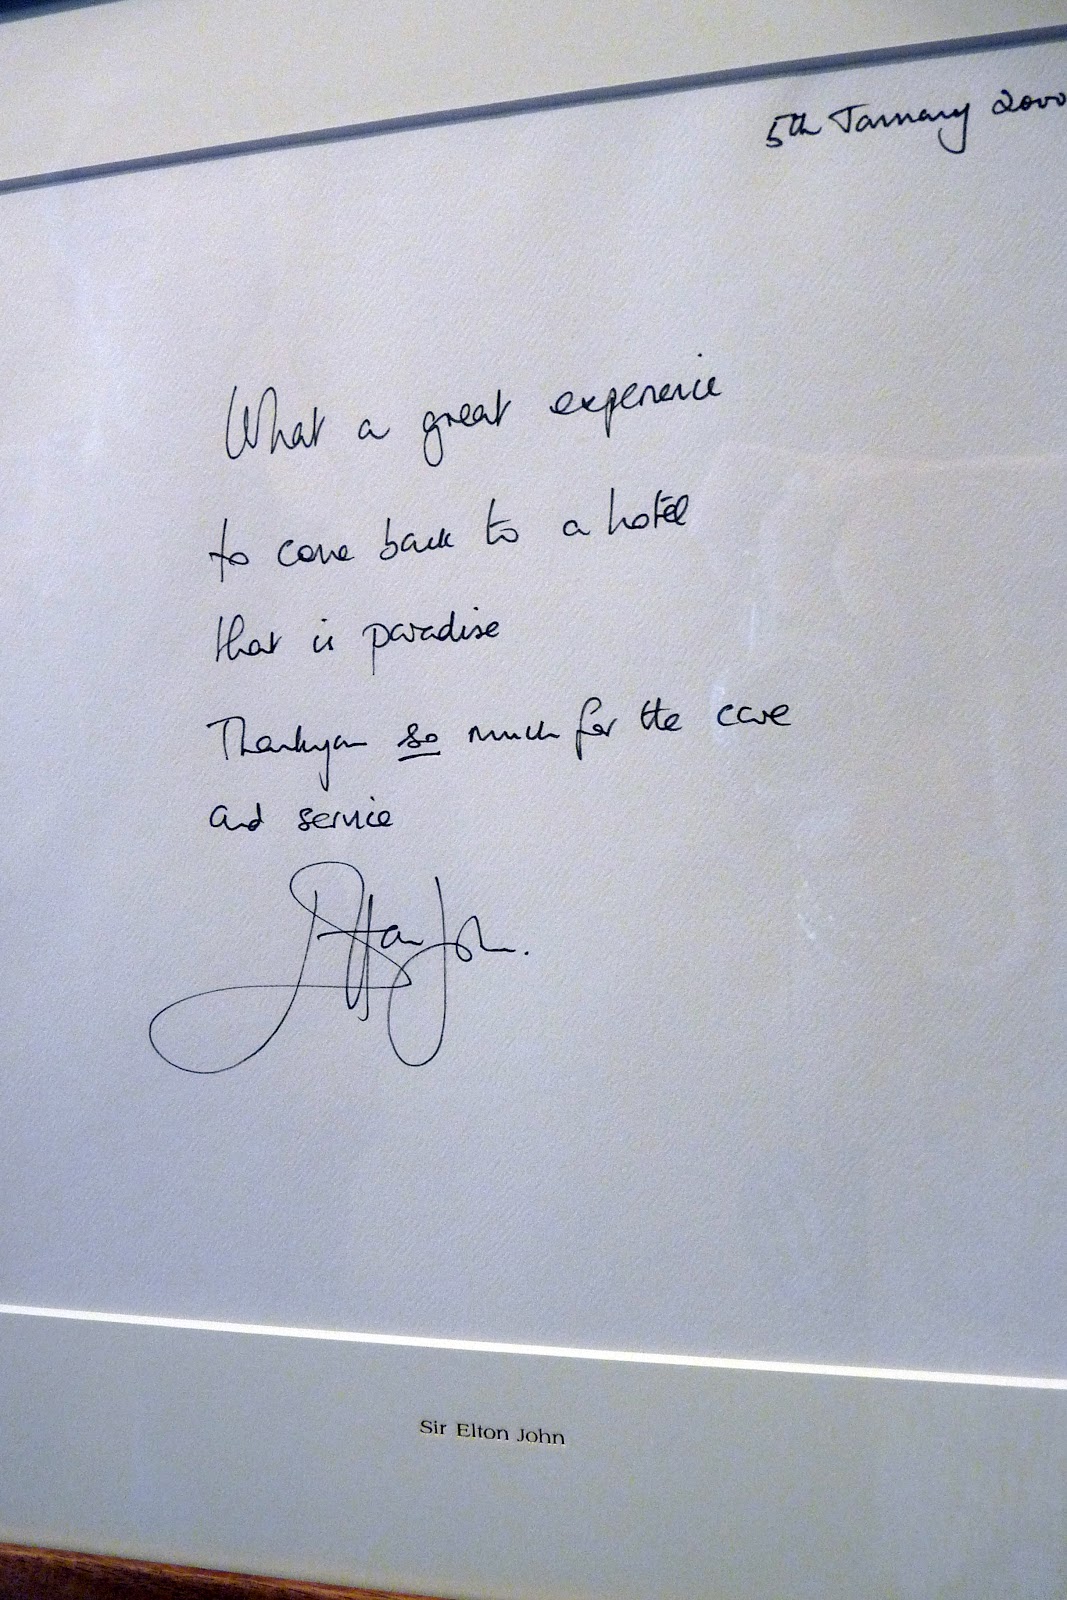 5th January 2000
What a great experience
to come back to a hotel
that is paradise
Thankyou so much for the care
and service
Elton John.
Sir Elton John